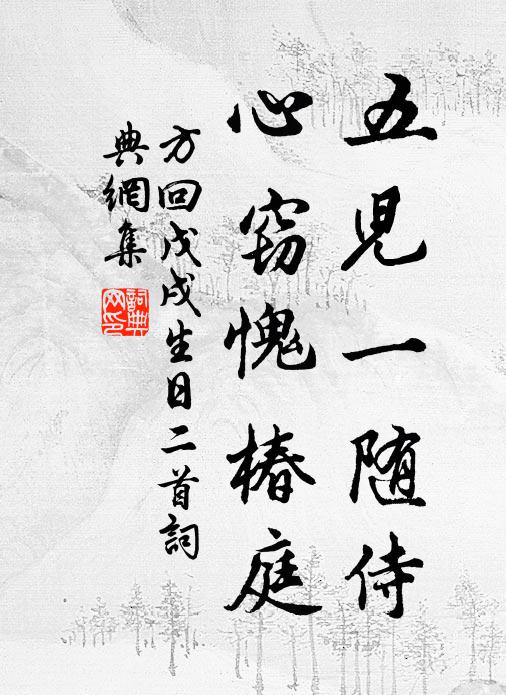 五兒一随侍
心窃愧椿庭
方回戊戌生日二首詞
典網集
詞典網印